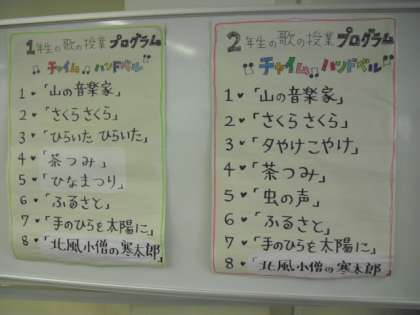 1年生の歌の授業プログラム
チャイム♫ハンドベル
1♥「山の音楽家」
2♥「さくらさくら」
3♥「ひらいた ひらいた」
4♥「茶つみ」
5♥「ひなまつり」
6♥「ふるさと」
7♥「手のひらを太陽に」
8♥「北風小僧の寒太郎」
2年生の歌の授業プログラム
チャイム♫ハンドベル
1♥「山の音楽家」
2♥「さくらさくら」
3♥「夕やけこやけ」
4♥「茶つみ」
5♥「虫の声」
6♥「ふるさと」
7♥「手のひらを太陽に」
8♥「北風小僧の寒太郎」